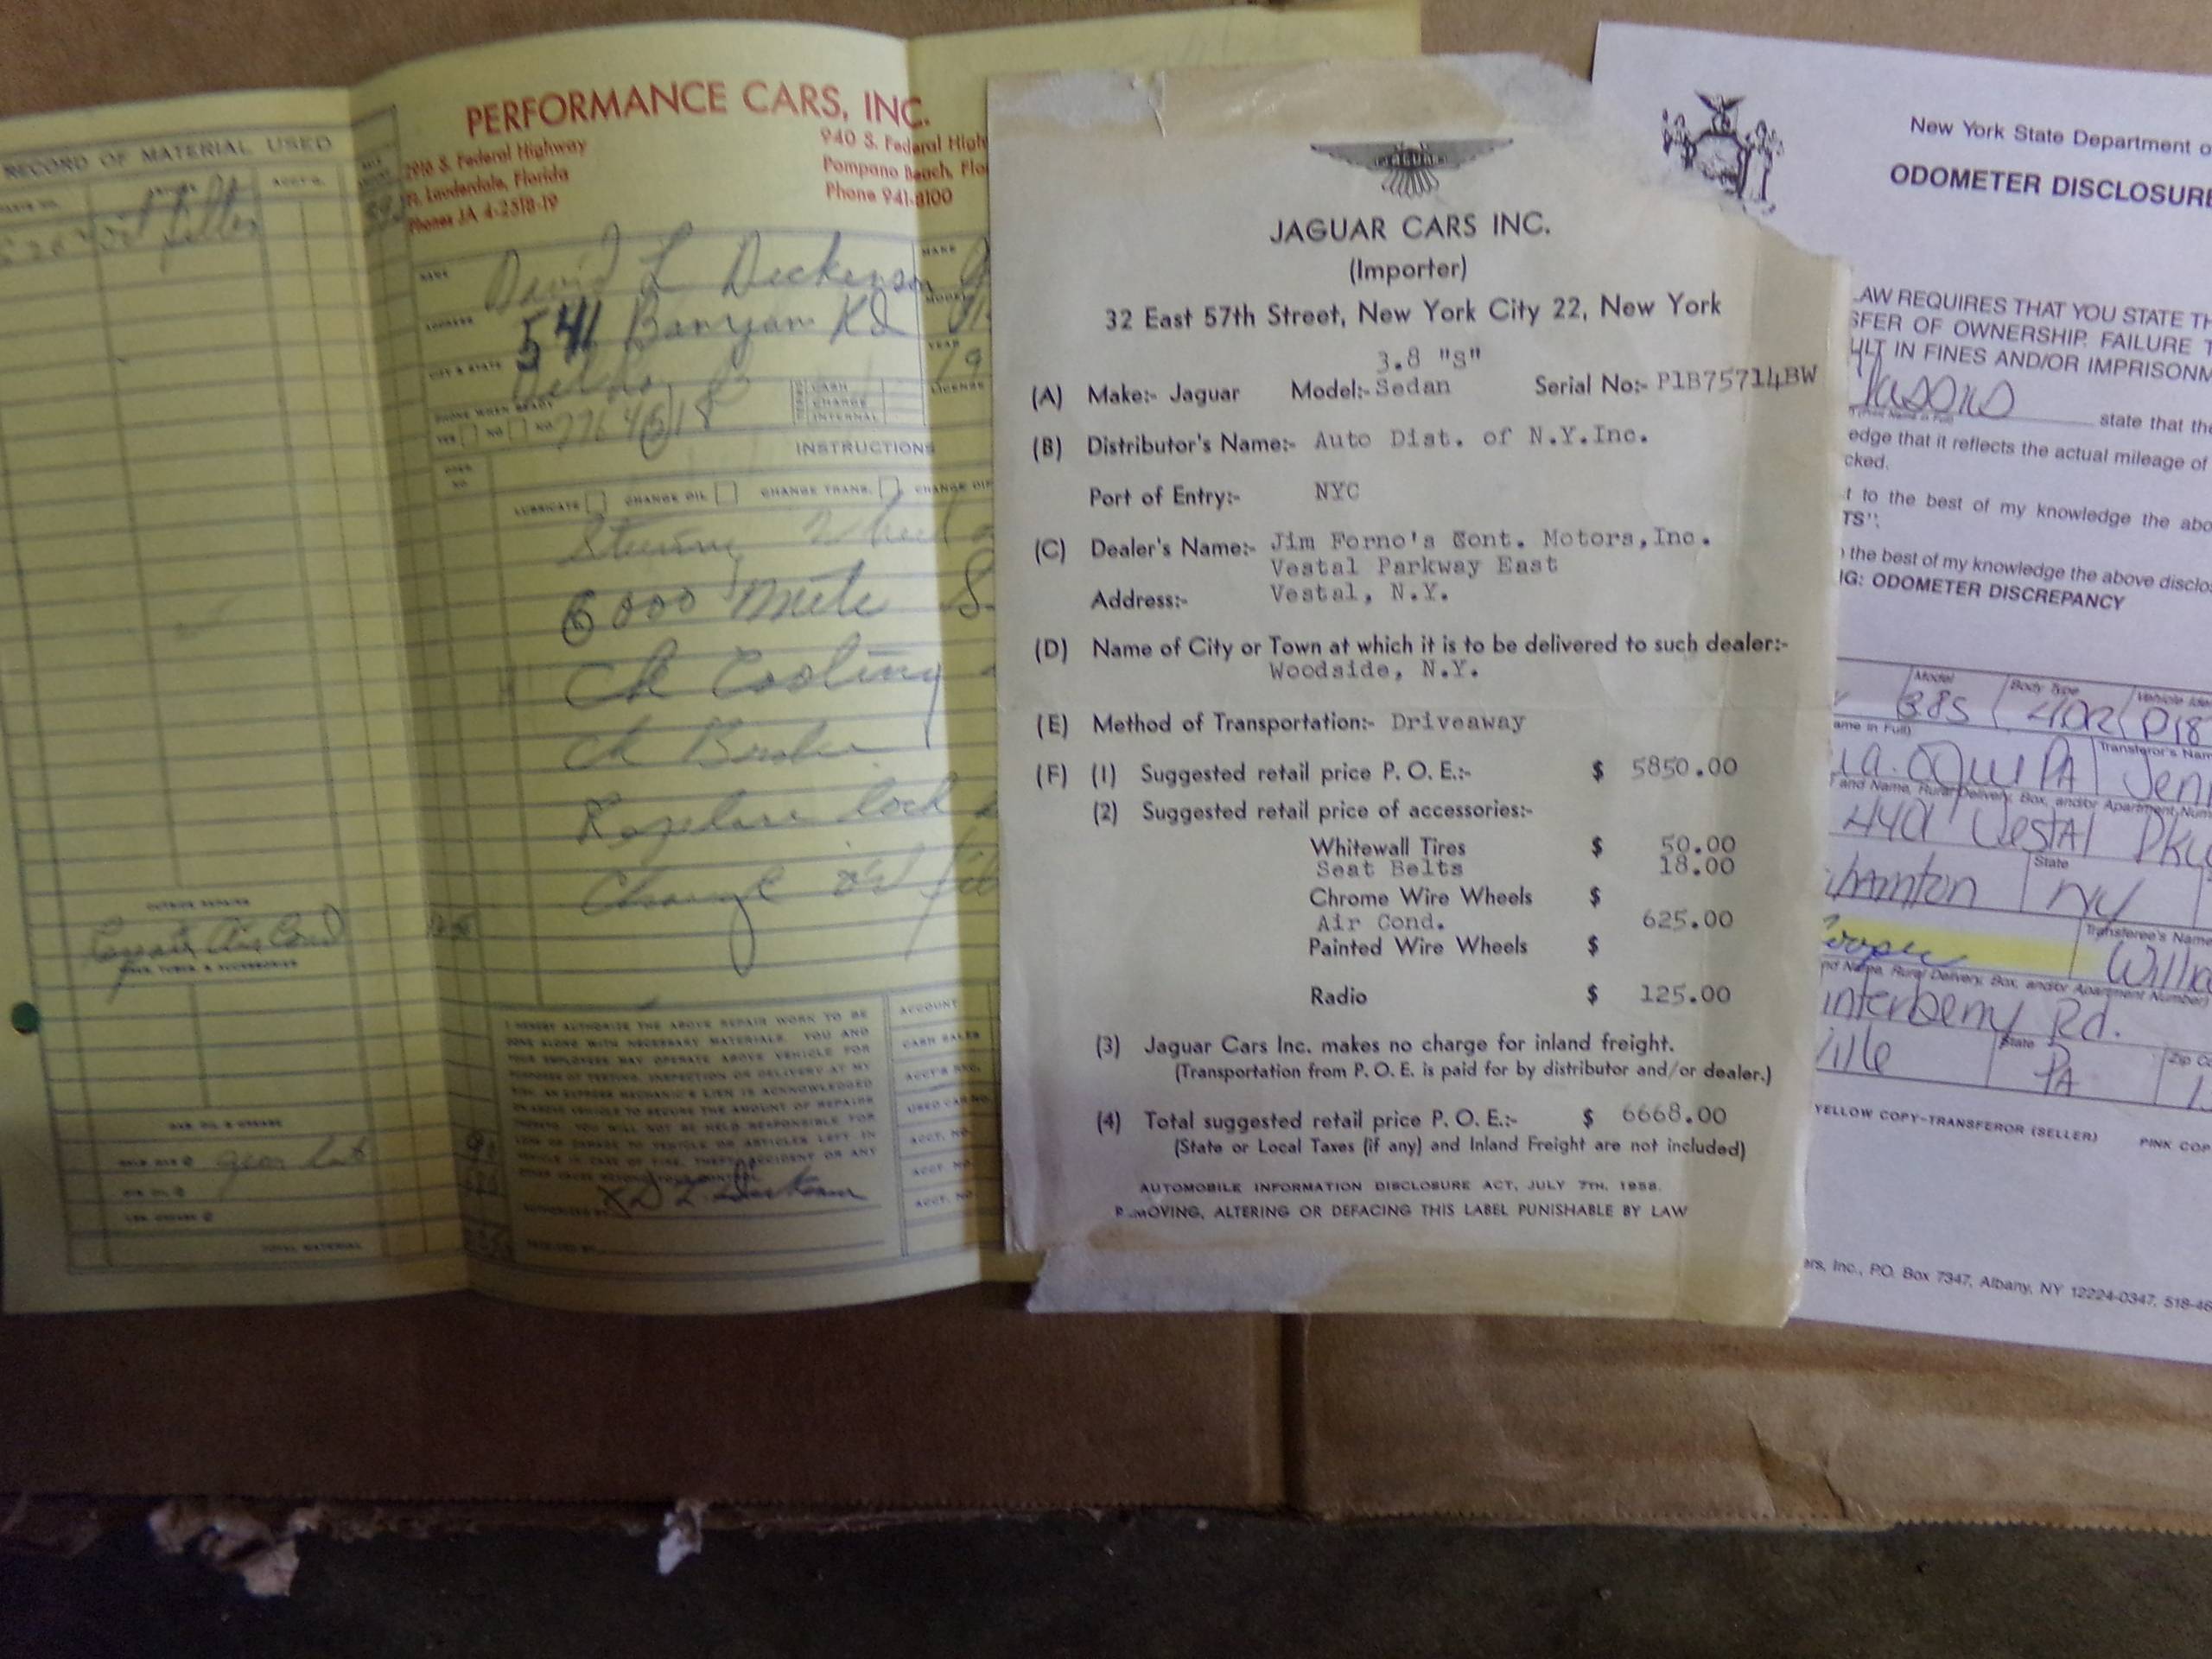 RECORD OF MATERIAL USED
ACCT'G.
oil filter
OUTSIDE REPAIRS
Repair Air Cond
TIRES, TUBES, & ACCESSORIES
GAS, OIL & GREASE
gear lub
TOTAL MATERIAL
PERFORMANCE CARS, INC.
2916 S. Federal Highway
Ft. Lauderdale, Florida
Phones JA 4-2518-19
940 S. Federal High
Pompano Beach, Flo
Phone 941-8100
NAME David L Dickenson
MAKE
ADDRESS 541 Banyan Rd
MODEL
CITY & STATE Delray B
YEAR 19
LICENSE
PHONE WHEN READY
YES NO NO.
CASH
CHARGE
INTERNAL
INSTRUCTIONS
OPER. NO.
LUBRICATE CHANGE OIL CHANGE TRANS. CHANGE DIF
Steering Wheel
6000 Mile S
Ck Cooling
Ck Brake
lock
Change oil fil
I HEREBY AUTHORIZE THE ABOVE REPAIR WORK TO BE
DONE ALONG WITH NECESSARY MATERIALS. YOU AND
YOUR EMPLOYEES MAY OPERATE ABOVE VEHICLE FOR
PURPOSES OF TESTING, INSPECTION OR DELIVERY AT MY
RISK. AN EXPRESS MECHANIC'S LIEN IS ACKNOWLEDGED
ON ABOVE VEHICLE TO SECURE THE AMOUNT OF REPAIRS
THERETO. YOU WILL NOT BE HELD RESPONSIBLE FOR
LOSS OR DAMAGE TO VEHICLE OR ARTICLES LEFT IN
VEHICLE IN CASE OF FIRE, THEFT, ACCIDENT OR ANY
OTHER CAUSE BEYOND YOUR CONTROL.
AUTHORIZED BY X D L Dickenson
RECEIVED BY
ACCOUNT
CASH SALES
ACCT'S REC.
USED CAR NO.
ACCT. NO.
ACCT. NO.
ACCT. NO.
JAGUAR
JAGUAR CARS INC.
(Importer)
32 East 57th Street, New York City 22, New York
3.8 "S"
(A) Make:- Jaguar Model:- Sedan Serial No:- P1B75714BW
(B) Distributor's Name:- Auto Dist. of N.Y.Inc.
Port of Entry:- NYC
(C) Dealer's Name:- Jim Forno's Cont. Motors,Inc.
Vestal Parkway East
Address:- Vestal, N.Y.
(D) Name of City or Town at which it is to be delivered to such dealer:-
Woodside, N.Y.
(E) Method of Transportation:- Driveaway
(F) (1) Suggested retail price P. O. E.:- $ 5850.00
(2) Suggested retail price of accessories:-
Whitewall Tires $ 50.00
Seat Belts 18.00
Chrome Wire Wheels $
Air Cond. 625.00
Painted Wire Wheels $
Radio $ 125.00
(3) Jaguar Cars Inc. makes no charge for inland freight.
(Transportation from P. O. E. is paid for by distributor and/or dealer.)
(4) Total suggested retail price P. O. E.:- $ 6668.00
(State or Local Taxes (if any) and Inland Freight are not included)
AUTOMOBILE INFORMATION DISCLOSURE ACT, JULY 7TH, 1958.
R MOVING, ALTERING OR DEFACING THIS LABEL PUNISHABLE BY LAW
New York State Department o
ODOMETER DISCLOSURE
LAW REQUIRES THAT YOU STATE TH
SFER OF OWNERSHIP. FAILURE T
ULT IN FINES AND/OR IMPRISONM
state that the
edge that it reflects the actual mileage of
cked.
t to the best of my knowledge the abo
TS";
the best of my knowledge the above disclo
NG: ODOMETER DISCREPANCY
Model
Body Type
Vehicle Ide
385 4DR P18
ame in Full)
Transferor's Nam
PA Jenn
and Name, Rural Delivery, Box, and/or Apartment Num
4401 Vestal Pkw
State
hamton NY
Transferee's Name
Cooper Willia
nd Name, Rural Delivery, Box, and/or Apartment Number)
interberry Rd.
State
Zip Co
ville PA
YELLOW COPY-TRANSFEROR (SELLER) PINK COP
ers, Inc., P.O. Box 7347, Albany, NY 12224-0347, 518-46